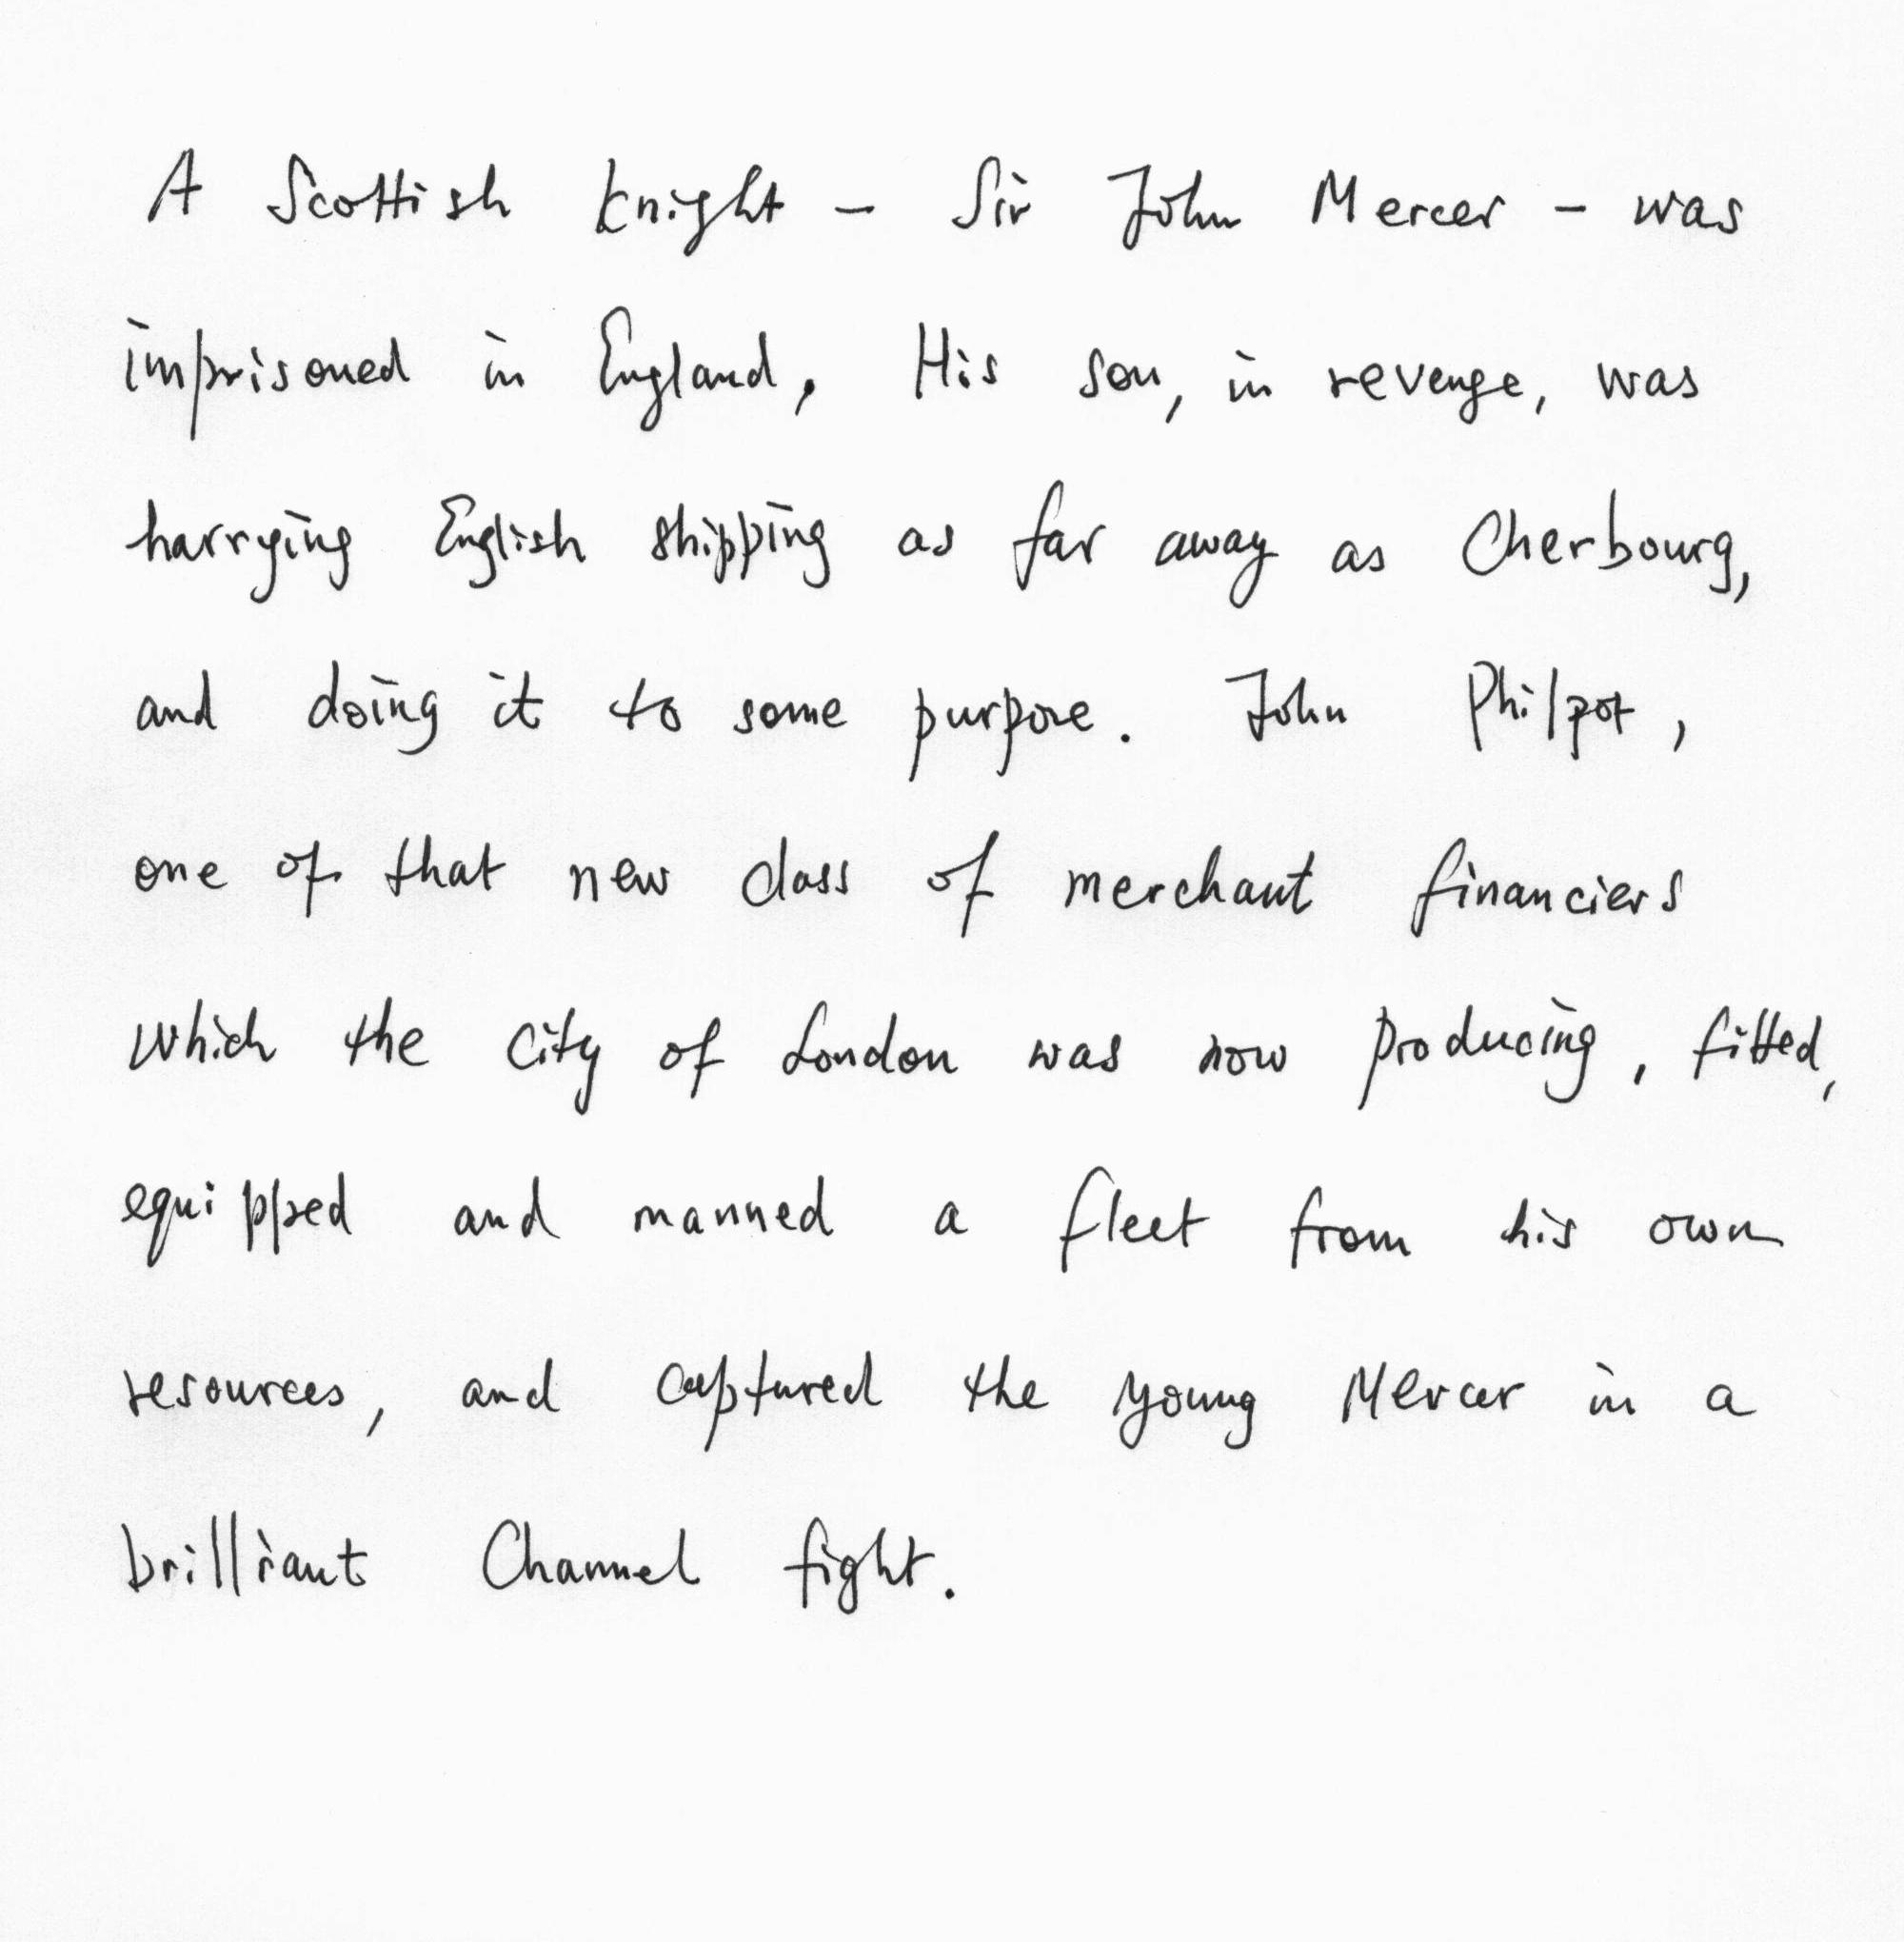 A Scottish knight - Sir John Mercer - was
imprisoned in England. His son, in revenge, was
harrying English shipping as far away as Cherbourg,
and doing it to some purpose. John Philpot,
one of that new class of merchant financiers
which the City of London was now producing, fitted,
equipped and manned a fleet from his own
resources, and captured the young Mercer in a
brilliant Channel fight.